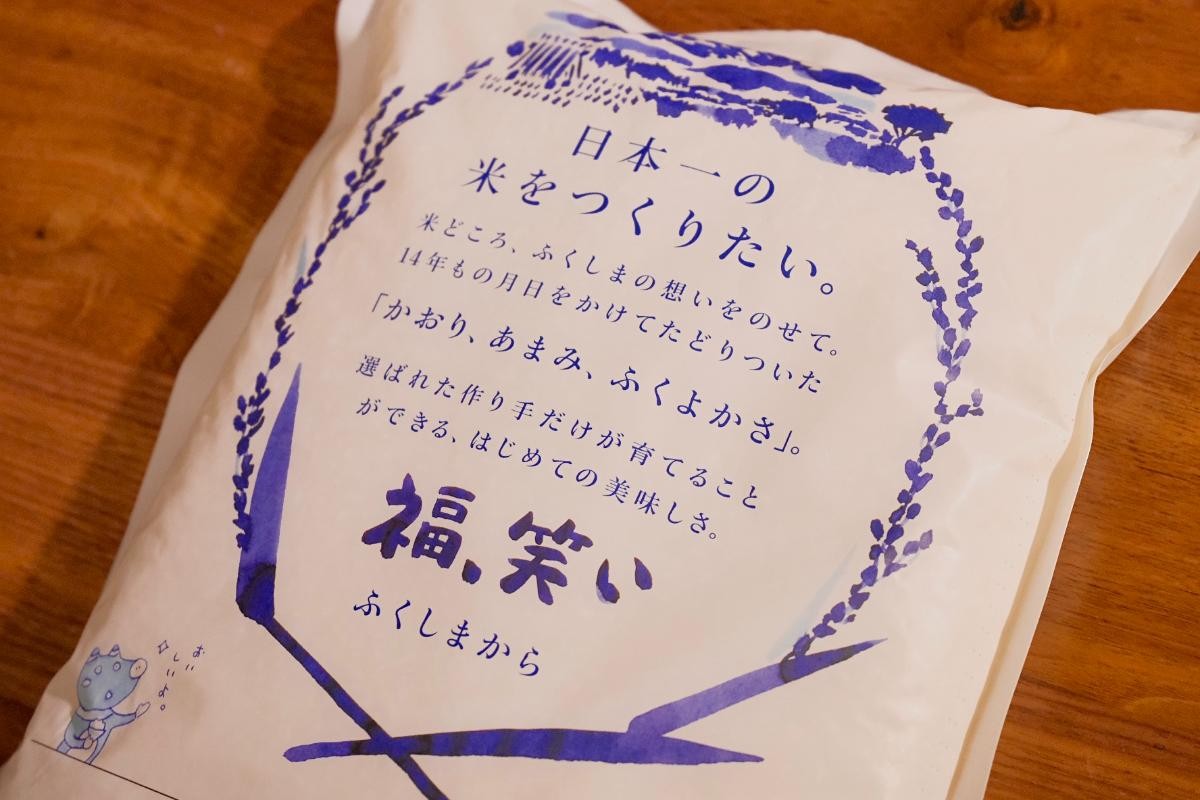 日本一の
米をつくりたい。
米どころ、ふくしまの想いをのせて。
14年もの月日をかけてたどりついた
「かおり、あまみ、ふくよかさ」。
選ばれた作り手だけが育てること
ができる、はじめての美味しさ。
福、笑い
ふくしまから
おいしいよ。